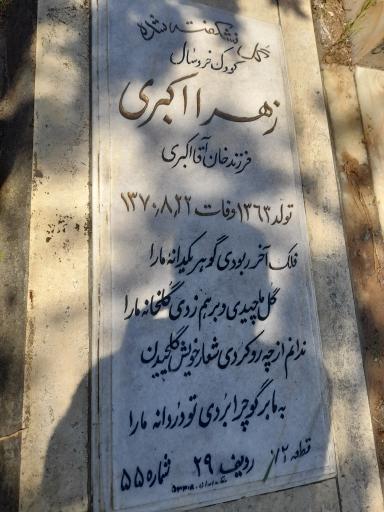 گل نشکفته شده
کودک خردسال
زهرا اکبری
فرزند خان آقا اکبری
تولد ۱۳۶۳ وفات ۱۳۷۰,۸,۲۲
فلک آخر ربودی گوهر یکدانهٔ ما را
گل ما چیدی و بر هم زدی گلخانهٔ ما را
ندانم از چه رو کردی شعار خویش گلچیدن
به ما برگو چرا بردی تو دردانه ما را
قطعه ۱۲/ ردیف ۲۹ شماره ۵۵